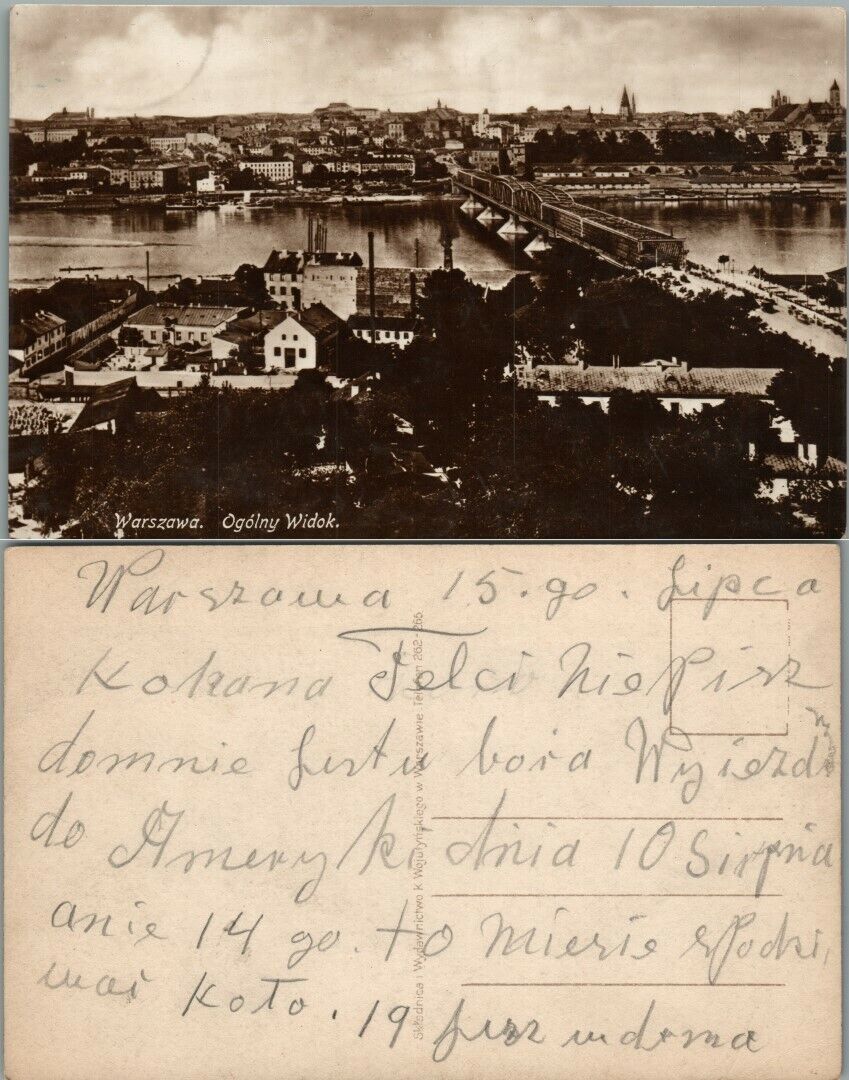 Warszawa. Ogólny Widok.
Warszawa 15. go. Lipca
Kohana Felci Nie Pisz
domnie Lestu boia Wyiezdi
do Ameryki dnia 10 Sirpnia
anie 14 go. to Miesie spodzi,
wai Koło. 19 w doma
Składnica i Wydawnictwo K Wojutyńskiego w Warszawie. Telefon 262-265